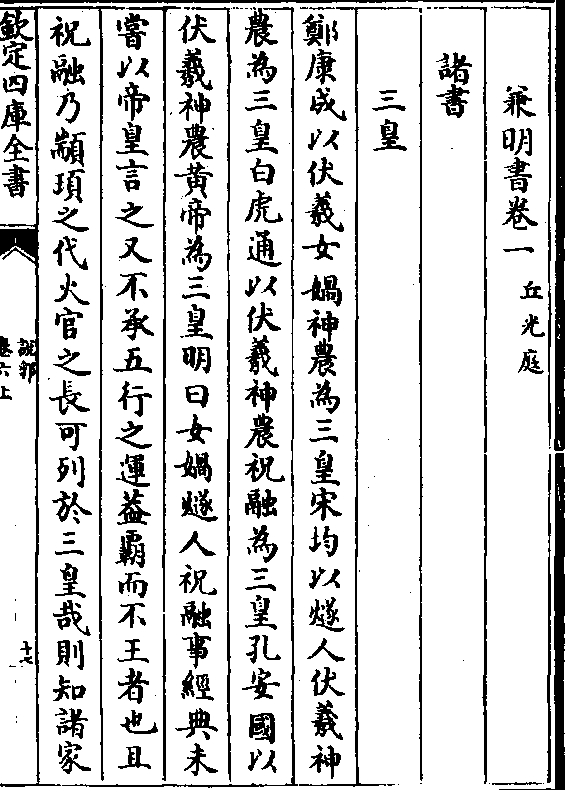 兼明書卷一
丘光庭
諸書
三皇
鄭康成以伏羲女媧神農為三皇宋均以燧人伏羲神
農為三皇白虎通以伏羲神農祝融為三皇孔安國以
伏羲神農黃帝為三皇明曰女媧燧人祝融事經典未
嘗以帝皇言之又不承五行之運葢霸而不王者也且
祝融乃顓頊之代火官之長可列於三皇哉則知諸家
欽定四庫全書
說郛
卷六上
十七